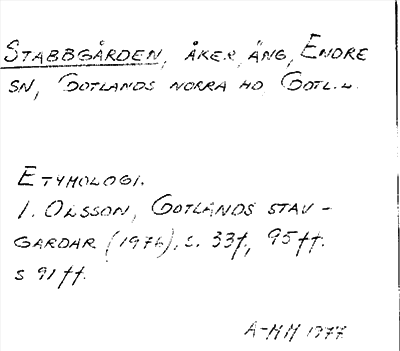 STABBGÅRDEN, ÅKER, ÄNG, ENDRE
SN, GOTLANDS NORRA HD GOTL.L.
ETYMOLOGI.
I. OLSSON, GOTLANDS STAV-
GARDAR (1976), S. 33f, 95ff.
S 91ff.
A-MH 1977